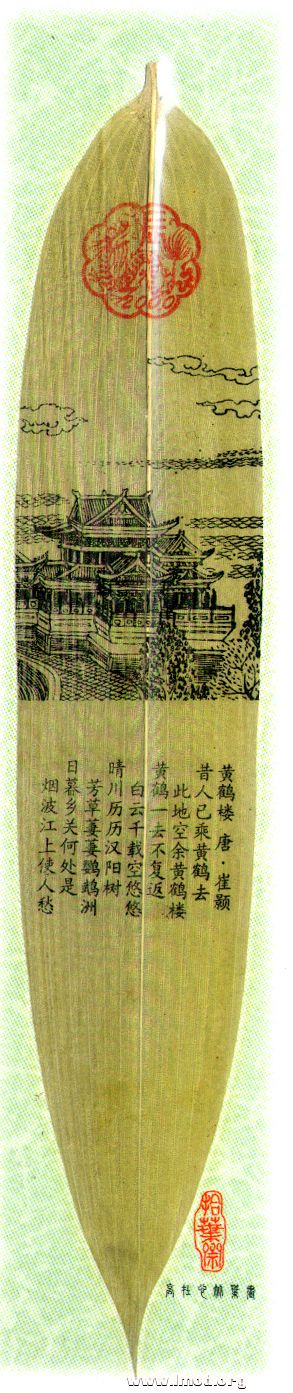 2000
黄鹤楼 唐·崔颢
昔人已乘黄鹤去
此地空余黄鹤楼
黄鹤一去不复返
白云千载空悠悠
晴川历历汉阳树
芳草萋萋鹦鹉洲
日暮乡关何处是
烟波江上使人愁
拾叶斋
www.lmod.org